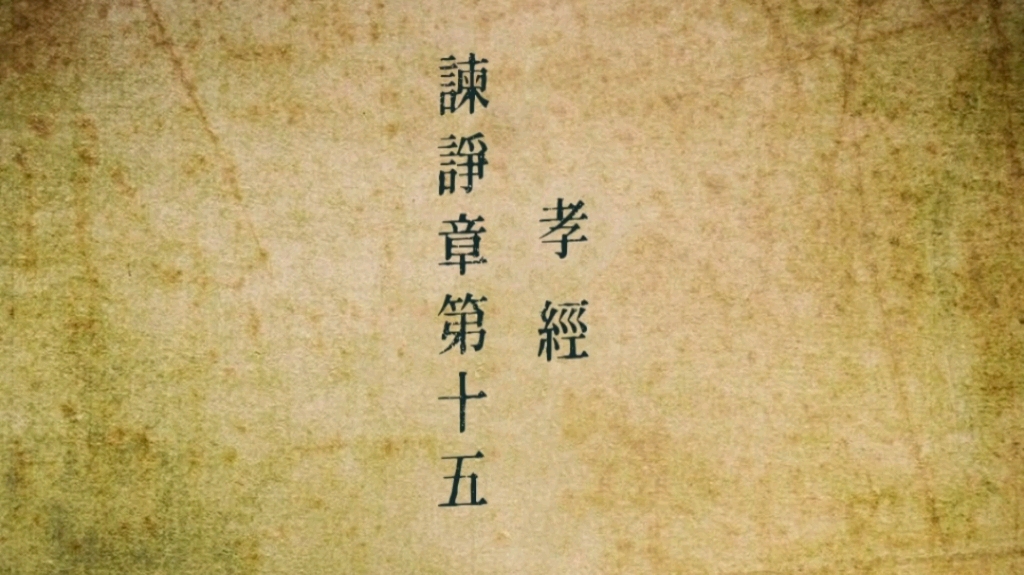 孝經
諫諍章第十五